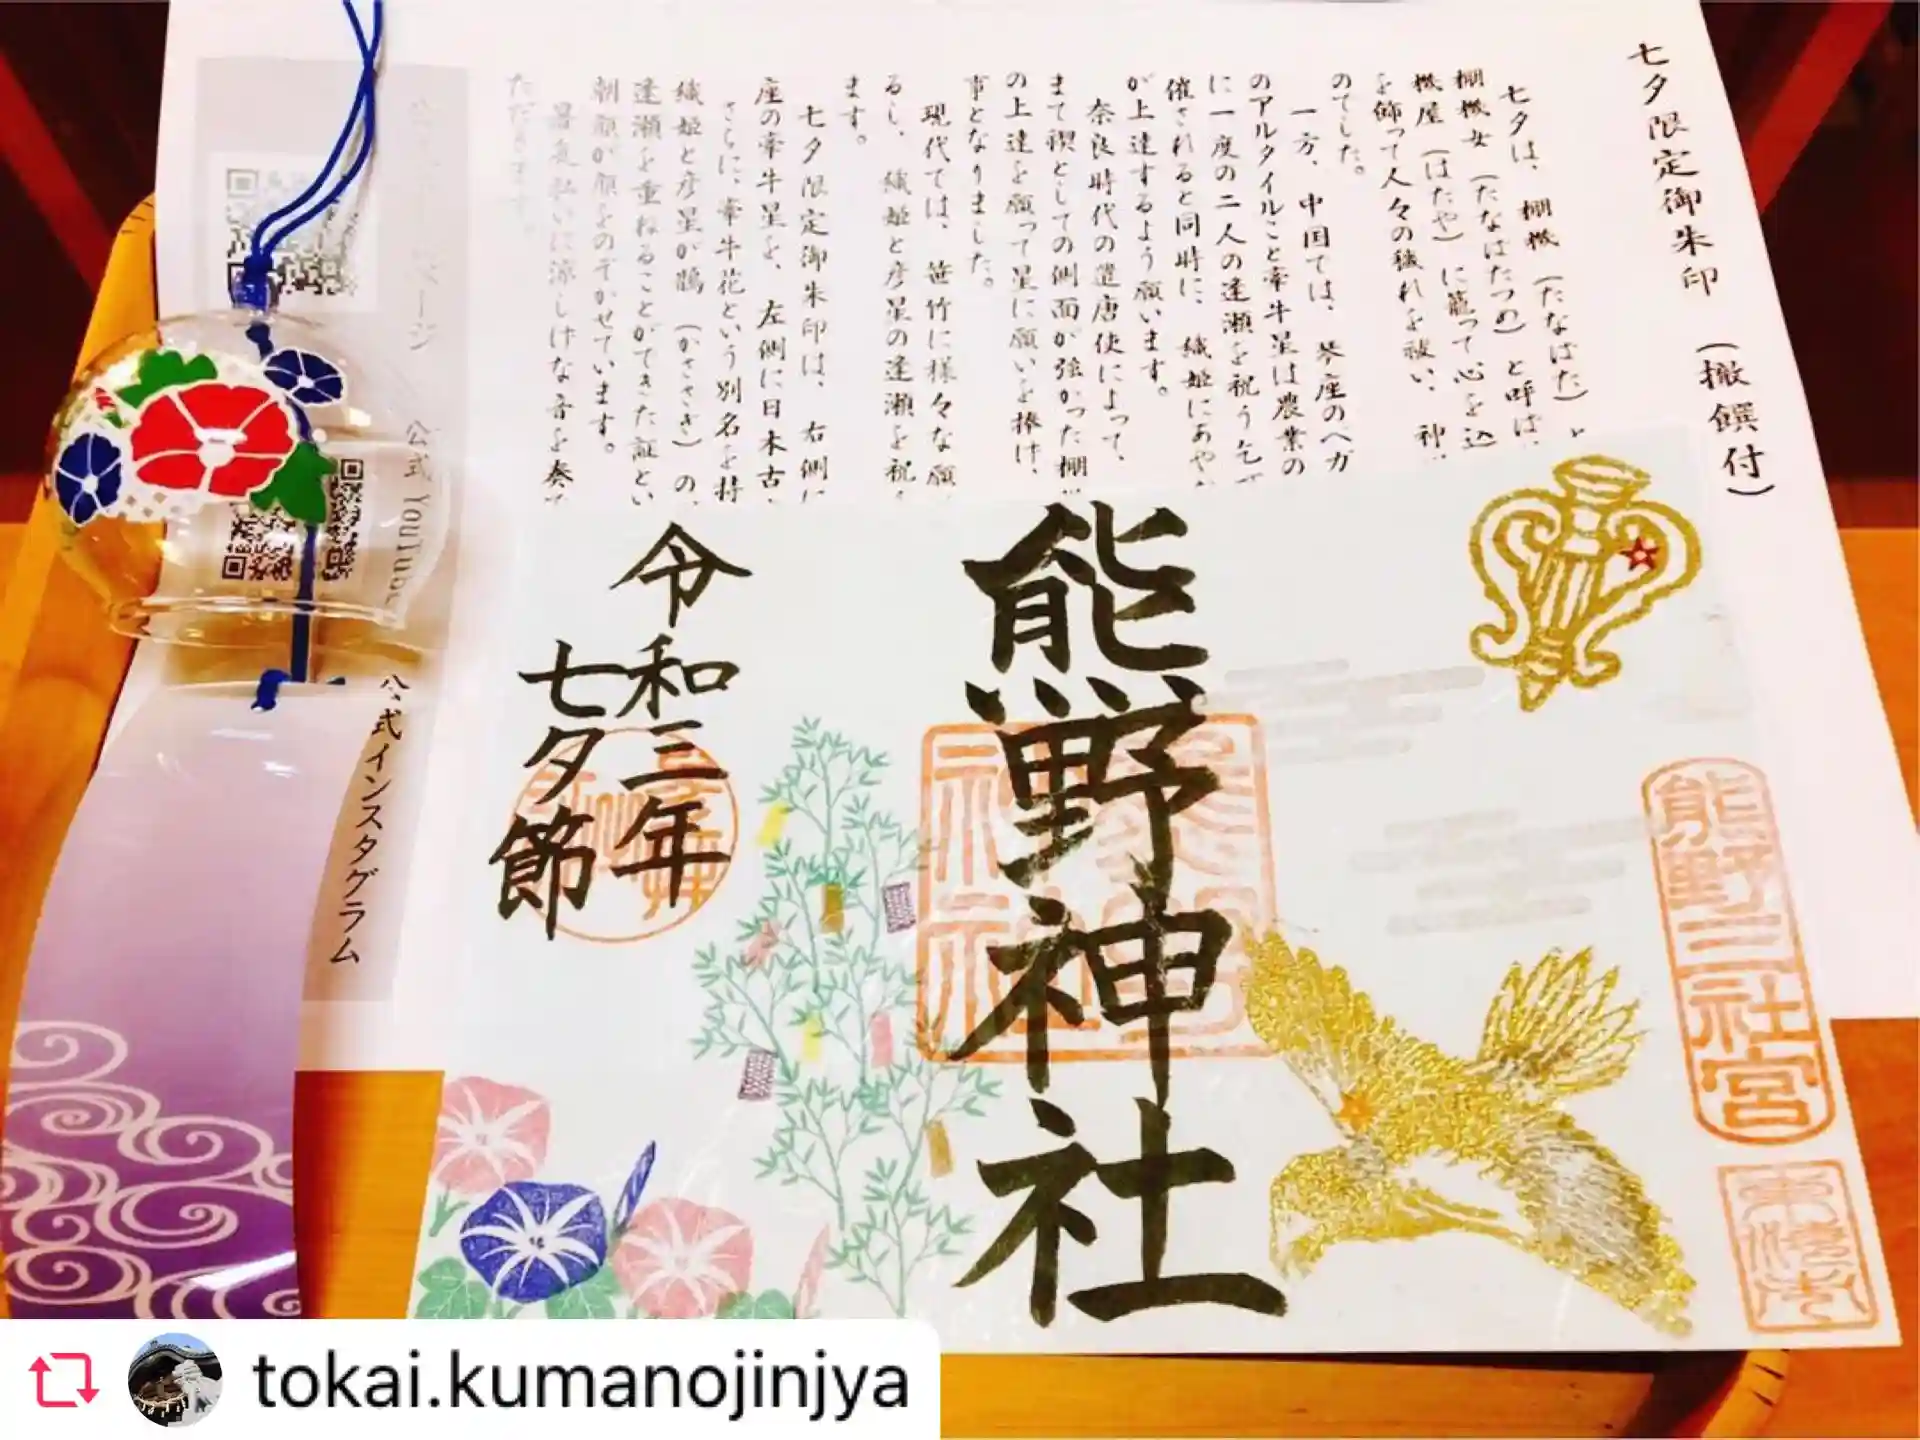 七夕限定御朱印 (撤饌付)
七夕は、棚機(たなばた)
棚機女(たなばたつめ)と呼ば
機屋(はたや)に籠って心を込
を飾って人々の穢れを祓い、神
のでした。
一方、中国では、琴座のベガ
のアルタイルこと牽牛星は農業の
に一度の二人の逢瀬を祝う乞
催されると同時に、織姫にあや
が上達するよう願います。
奈良時代の遣唐使によって、
まで禊としての側面が強かった棚
の上達を願って星に願いを捧げ、
事となりました。
現代では、笹竹に様々な願
るし、織姫と彦星の逢瀬を祝
ます。
七夕限定御朱印は、右側に
座の牽牛星を、左側に日本古
さらに、牽牛花という別名を持
織姫と彦星が鵲(かささぎ)の
逢瀬を重ねることができた証とい
朝顔が顔をのぞかせています。
暑気払いに涼しげな音を奏で
ただきます。
公式 YouTube
公式インスタグラム
熊野三社宮
熊野神社
令和三年
七夕節
tokai.kumanojinjya